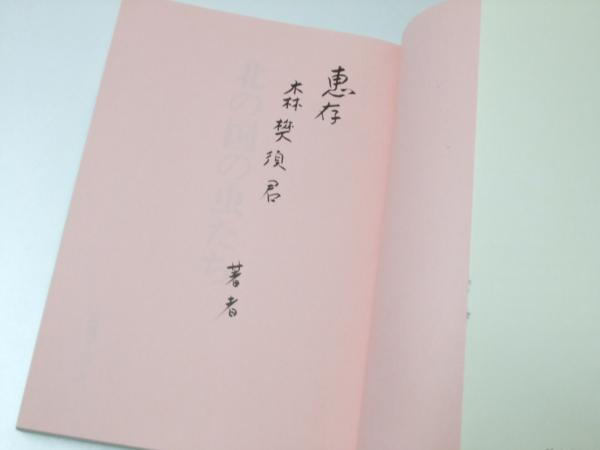 惠存
森樊須君
著者
北の国の虫たち